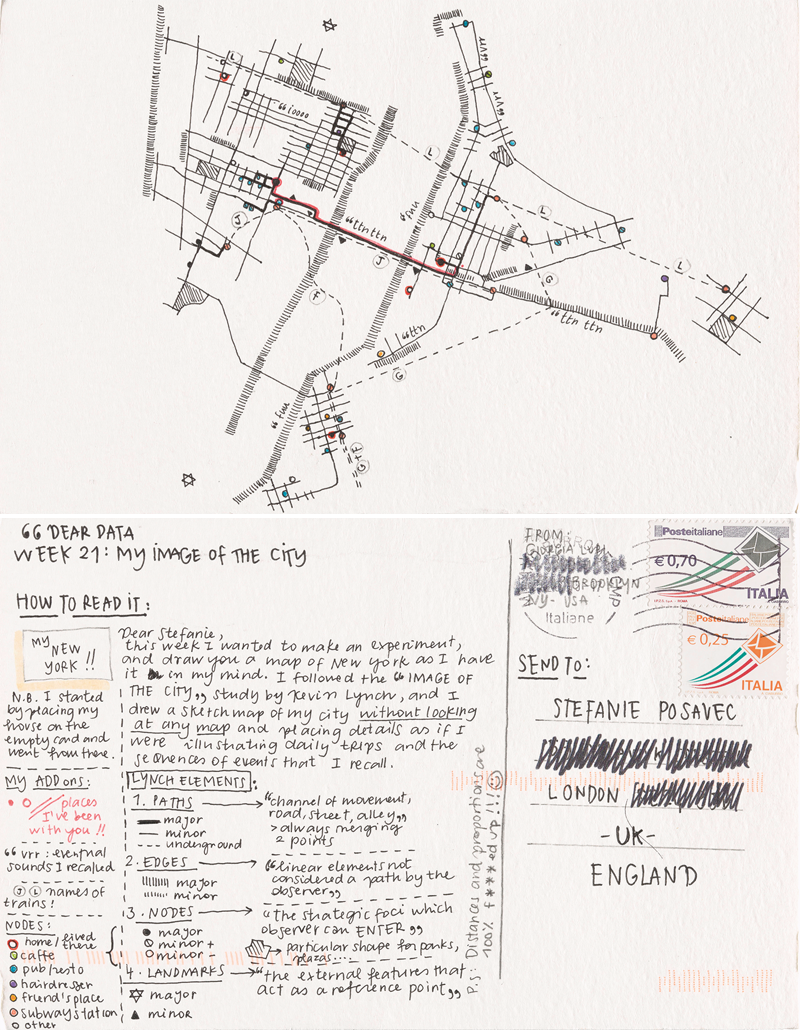 L
"vrr
"vrr
"ioooo
L
L
J
"ttn ttn
"fuu
J
L
F
G
"ttn ttn
"ttn
G
"fuu
G+F
"DEAR DATA
WEEK 21: MY IMAGE OF THE CITY
HOW TO READ IT:
MY
NEW
YORK!!
N.B. I started
by placing my
house on the
empty card and
went from there.
MY ADDons:
places
I've been
with you!!
"vrr: eventual
sounds I recalled
J L names of
trains!
NODES:
home/lived
there
caffe
pub/resto
hairdresser
friend's place
subway station
other
Dear Stefanie,
this week I wanted to make an experiment,
and draw you a map of New York as I have
it in my mind. I followed the "IMAGE OF
THE CITY" study by Kevin Lynch, and I
drew a sketch map of my city without looking
at any map and placing details as if I
were illustrating daily trips and the
sequences of events that I recall.
LYNCH ELEMENTS:
1. PATHS
major
minor
underground
"channel of movement,
road, street, alley"
> always merging
2 points
2. EDGES
major
minor
"linear elements not
considered a path by the
observer"
3. NODES
major
minor +
minor -
"the strategic foci which
observer can ENTER"
particular shape for parks,
plazas....
4. LANDMARKS
major
minor
"the external features that
act as a reference point"
P.S: Distances and proportions are
100% f****ed up!!!
FROM:
GIORGIA LUPI
BROOKLYN
NY- USA
Italiane
Posteitaliane
€0,70
ITALIA
Posteitaliane
€0,25
ITALIA
SEND TO:
STEFANIE POSAVEC
LONDON
-UK-
ENGLAND